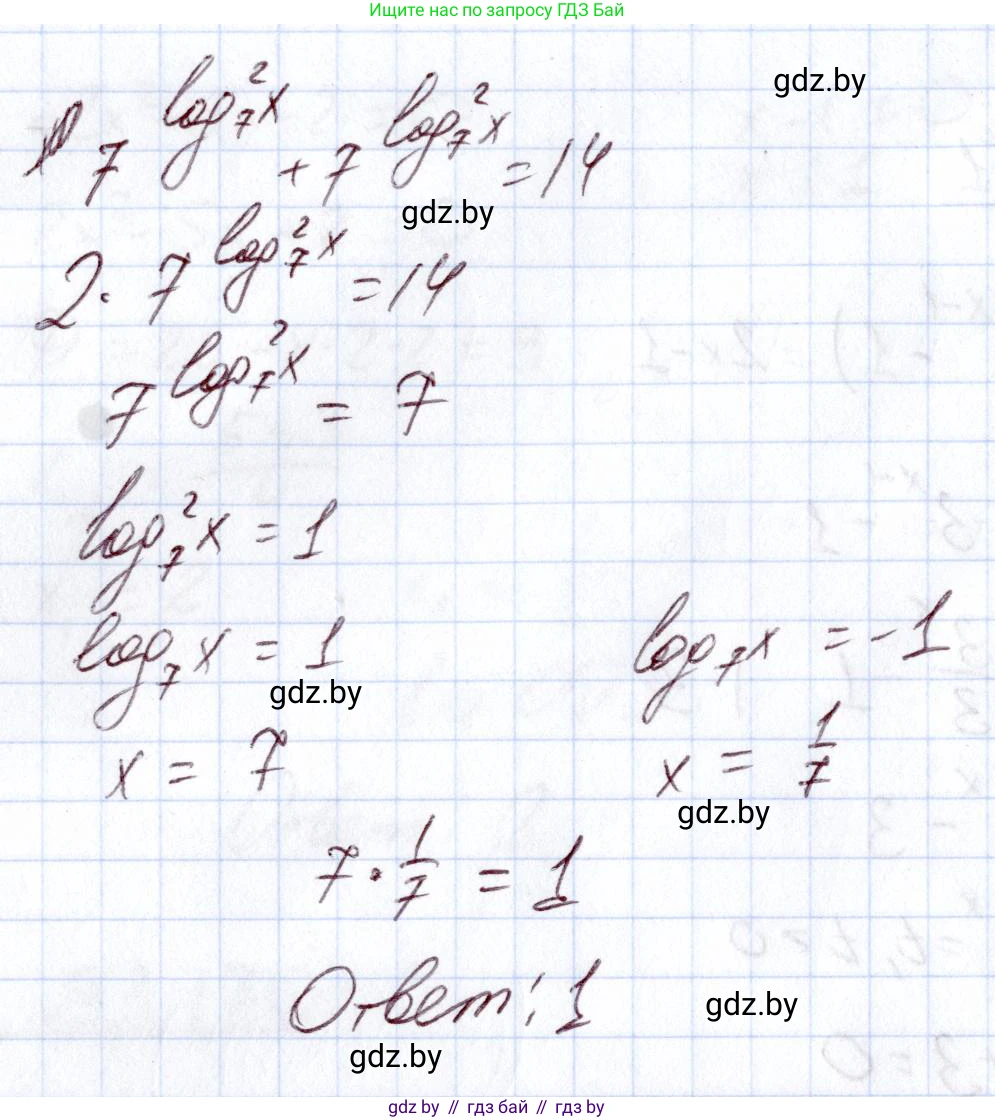 Ищите нас по запросу ГДЗ Бай
gdz.by
7^(log₇²x) + 7^(log₇²x) = 14
gdz.by
2 · 7^(log₇²x) = 14
7^(log₇²x) = 7
log₇²x = 1
log₇x = 1 log₇x = -1
gdz.by
x = 7 x = 1/7
gdz.by
7 · 1/7 = 1
Ответ: 1
gdz.by
gdz.by
gdz.by // гдз бай // гдз by